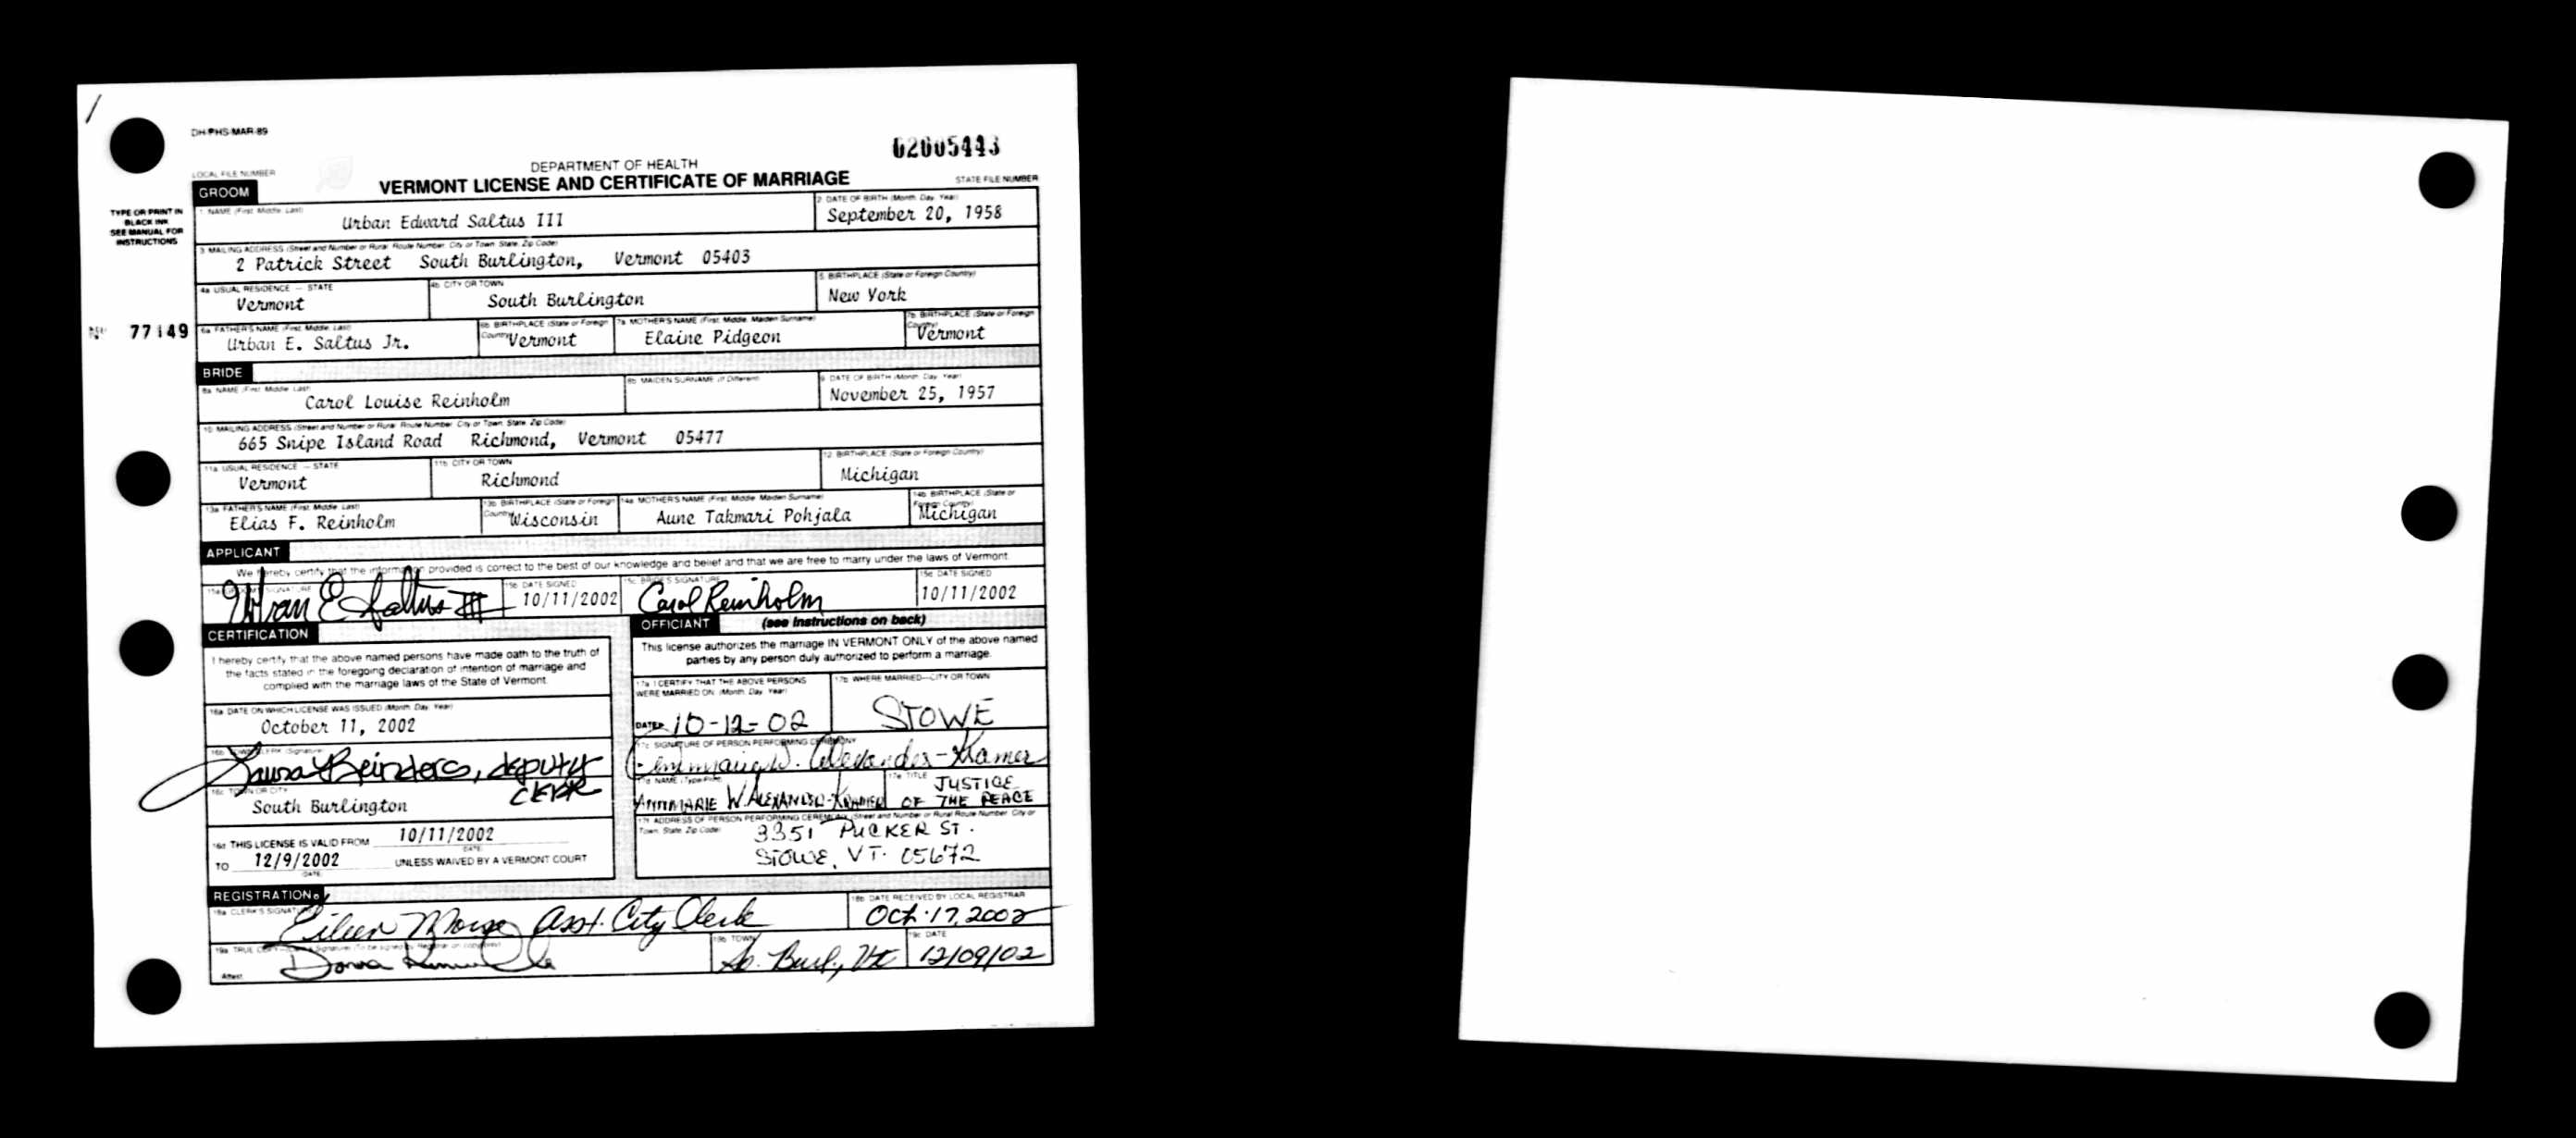 DH-PHS-MAR-89
02005443
DEPARTMENT OF HEALTH
LOCAL FILE NUMBER
VERMONT LICENSE AND CERTIFICATE OF MARRIAGE
STATE FILE NUMBER
TYPE OR PRINT IN
BLACK INK
SEE MANUAL FOR
INSTRUCTIONS
GROOM
1 NAME (First, Middle, Last)
Urban Edward Saltus III
2 DATE OF BIRTH (Month, Day, Year)
September 20, 1958
3 MAILING ADDRESS (Street and Number or Rural Route Number, City or Town, State, Zip Code)
2 Patrick Street South Burlington, Vermont 05403
4a USUAL RESIDENCE — STATE
Vermont
4b CITY OR TOWN
South Burlington
5 BIRTHPLACE (State or Foreign Country)
New York
77149
6a FATHER'S NAME (First, Middle, Last)
Urban E. Saltus Jr.
6b BIRTHPLACE (State or Foreign Country)
Vermont
7a MOTHER'S NAME (First, Middle, Maiden Surname)
Elaine Pidgeon
7b BIRTHPLACE (State or Foreign Country)
Vermont
BRIDE
8a NAME (First, Middle, Last)
Carol Louise Reinholm
8b MAIDEN SURNAME (If Different)
9 DATE OF BIRTH (Month, Day, Year)
November 25, 1957
10 MAILING ADDRESS (Street and Number or Rural Route Number, City or Town, State, Zip Code)
665 Snipe Island Road Richmond, Vermont 05477
11a USUAL RESIDENCE — STATE
Vermont
11b CITY OR TOWN
Richmond
12 BIRTHPLACE (State or Foreign Country)
Michigan
13a FATHER'S NAME (First, Middle, Last)
Elias F. Reinholm
13b BIRTHPLACE (State or Foreign Country)
Wisconsin
14a MOTHER'S NAME (First, Middle, Maiden Surname)
Aune Takmari Pohjala
14b BIRTHPLACE (State or Foreign Country)
Michigan
APPLICANT
We hereby certify that the information provided is correct to the best of our knowledge and belief and that we are free to marry under the laws of Vermont.
Urban E Saltus III
DATE SIGNED
10/11/2002
15c BRIDE'S SIGNATURE
Carol Reinholm
DATE SIGNED
10/11/2002
CERTIFICATION
I hereby certify that the above named persons have made oath to the truth of
the facts stated in the foregoing declaration of intention of marriage and
complied with the marriage laws of the State of Vermont.
16a DATE ON WHICH LICENSE WAS ISSUED (Month, Day, Year)
October 11, 2002
Laura Reinders, deputy
clerk
16c TOWN OR CITY
South Burlington
16d THIS LICENSE IS VALID FROM 10/11/2002
(DATE)
TO 12/9/2002 UNLESS WAIVED BY A VERMONT COURT
(DATE)
OFFICIANT (see instructions on back)
This license authorizes the marriage IN VERMONT ONLY of the above named
parties by any person duly authorized to perform a marriage.
17a I CERTIFY THAT THE ABOVE PERSONS
WERE MARRIED ON: (Month, Day, Year)
DATE 10-12-02
17b WHERE MARRIED—CITY OR TOWN
STOWE
17c SIGNATURE OF PERSON PERFORMING CEREMONY
Annmarie W. Alexander-Kramer
17d NAME (Type/Print)
ANNMARIE W. ALEXANDER-KRAMER
17e TITLE
JUSTICE
OF THE PEACE
17f ADDRESS OF PERSON PERFORMING CEREMONY (Street and Number or Rural Route Number, City or
Town, State, Zip Code)
3351 PUCKER ST.
STOWE, VT. 05672
REGISTRATION
18a CLERK'S SIGNATURE
Eileen Morse Asst. City Clerk
18b DATE RECEIVED BY LOCAL REGISTRAR
Oct. 17, 2002
Attest
Donna
19b TOWN
So. Burl, Vt
19c DATE
12/09/02